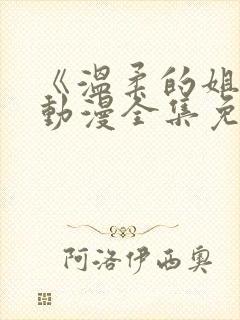 《温柔的姐
动漫全集免
阿洛伊西奥